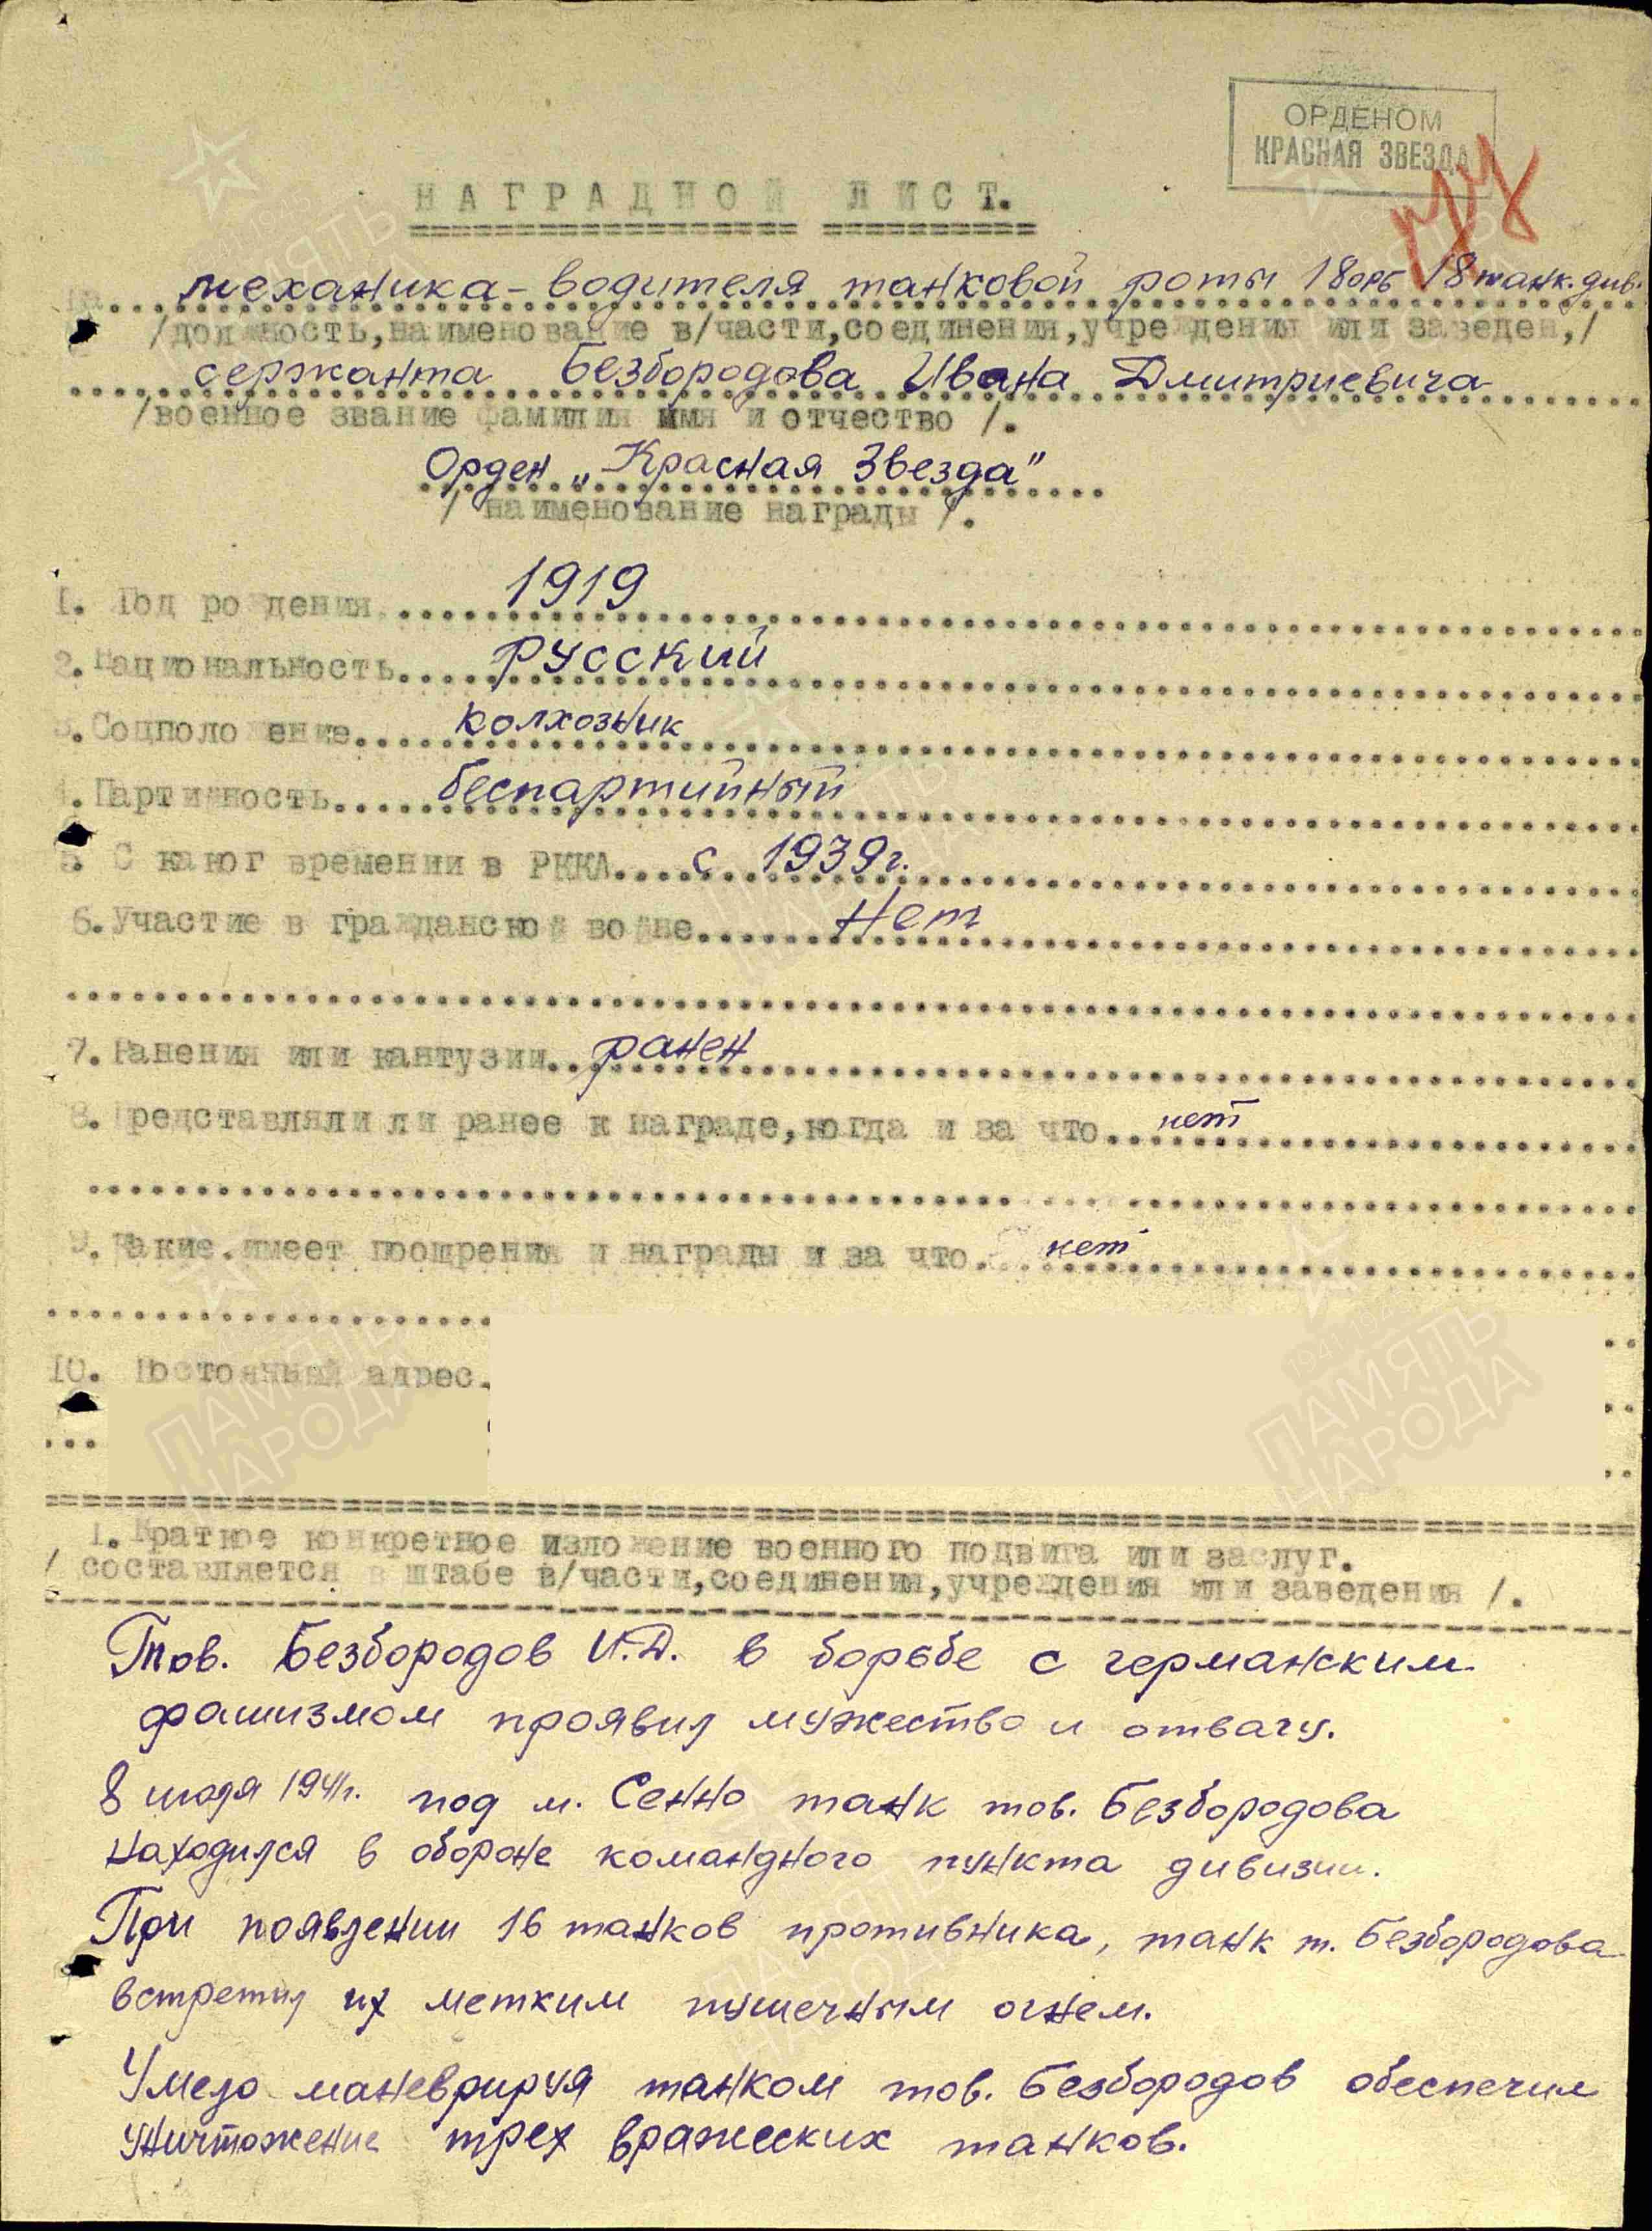 ОРДЕНОМ
КРАСНАЯ ЗВЕЗДА
НАГРАДНОЙ ЛИСТ.
На... механика-водителя танковой роты 18 орб 18 танк. див.
/должность, наименование в/части, соединения, учреждения или заведен,/
сержанта Безбородова Ивана Дмитриевича
/военное звание фамилия имя и отчество /.
Орден „Красная Звезда"
/ наименование награды /.
1. Год рождения... 1919
2. Национальность... русский
3. Соцположение... колхозник
4. Партийность... беспартийный
5. С какого времени в РККА... с 1939г.
6. Участие в гражданской войне... Нет
7. Ранения или кантузии... ранен
8. Представляли ли ранее к награде, когда и за что... нет
9. Какие имеет поощрения и награды и за что... нет
10. Постоянный адрес.
1. Краткое конкретное изложение военного подвига или заслуг.
/ составляется в штабе в/части, соединения, учреждения или заведения /.
Тов. Безбородов И.Д. в борьбе с германским
фашизмом проявил мужество и отвагу.
8 июля 1941г. под м. Сенно танк тов. Безбородова
находился в обороне командного пункта дивизии.
При появлении 16 танков противника, танк т. Безбородова
встретил их метким пушечным огнем.
Умело маневрируя танком тов. Безбородов обеспечил
уничтожение трех вражеских танков.
ПАМЯТЬ
НАРОДА